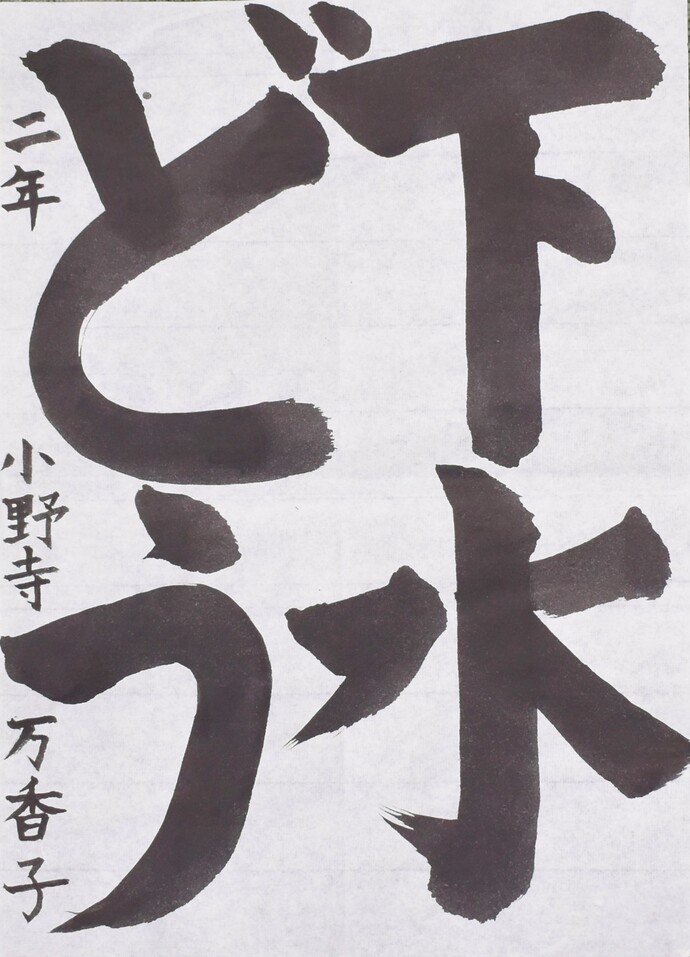 下水
どう
二年 小野寺 万香子